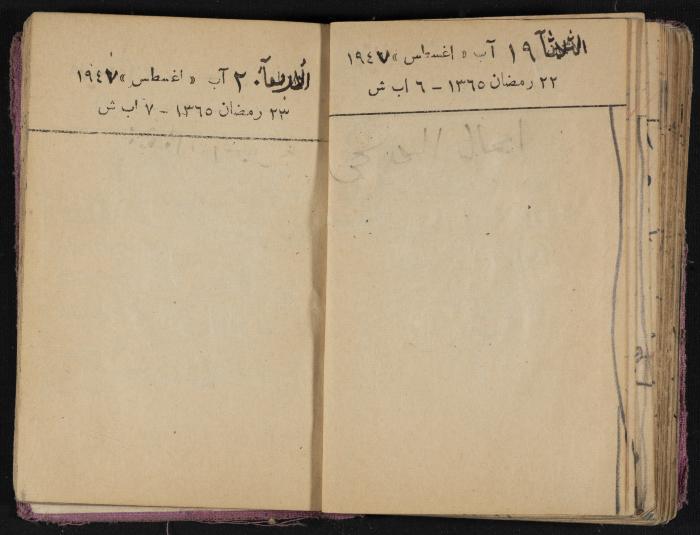 الثلاثآ ١٩ آب « اغسطس » ١٩٤٧
٢٢ رمضان ١٣٦٥ - ٦ اب ش
الأربعآ ٢٠ آب « اغسطس » ١٩٤٧
٢٣ رمضان ١٣٦٥ - ٧ اب ش